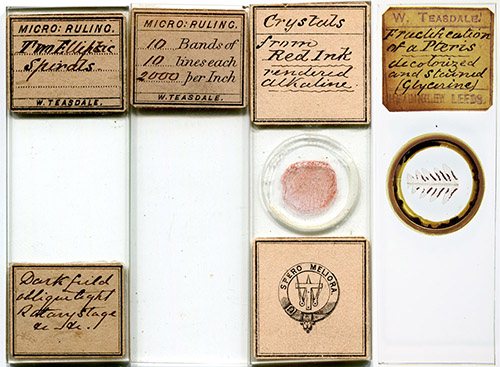 MICRO: RULING.
Two Elliptic
Spirals
W. TEASDALE.
Dark field
oblique light
Rotary stage
&c. &c.
MICRO: RULING.
10 Bands of
10 lines each
2000 per Inch
W. TEASDALE.
Crystals
from
Red Ink
rendered
alkaline.
SPERO MELIORA
W. TEASDALE
Fructification
of a Pteris
decolorized
and stained
(Glycerine)
HEADINGLEY LEEDS.